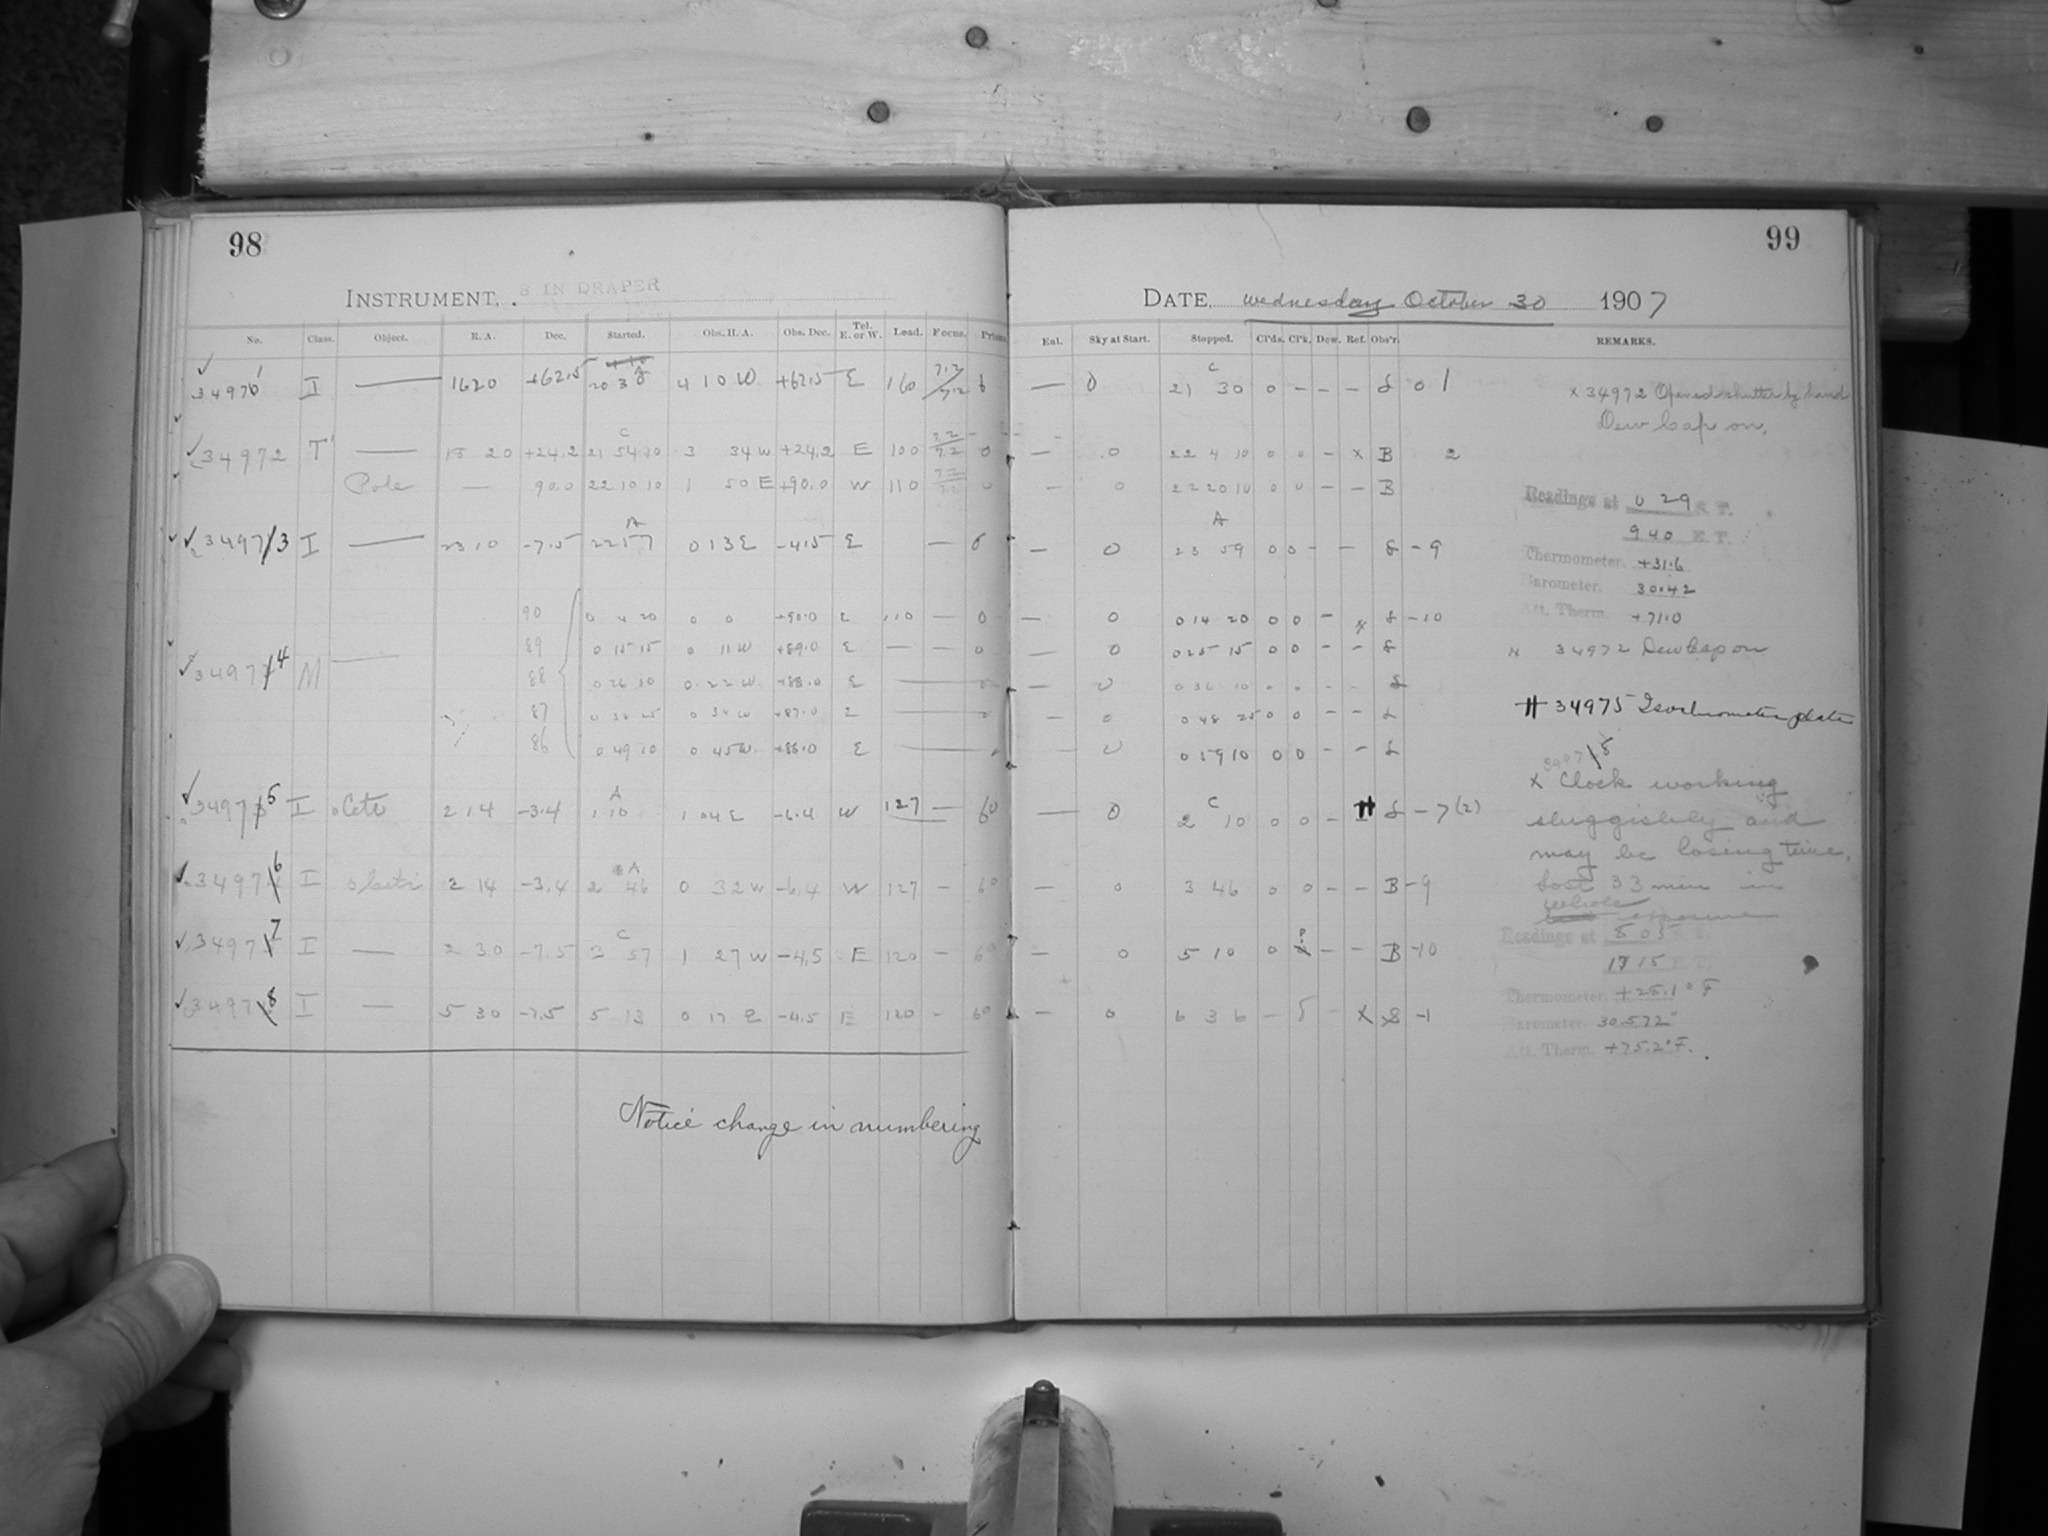 98
INSTRUMENT, . 8 IN DRAPER
No. Class. Object. R. A. Dec. Started. Obs. H. A. Obs. Dec. Tel. E. or W. Lead. Focus. Prism
34971 I — 1620 +62.5 20 38 4 10 W +62.5 E 160 7.2/7.2 6
34972 T — 18 20 +24.2 21 54 10 3 34 W +24.2 E 100 7.2/7.2 0
Pole — 90.0 22 10 10 1 50 E +90.0 W 110 0
34973 I — 23 10 -7.5 22 57 0 13 E -4.5 E — 0
90 0 4 20 0 0 +90.0 E 110 — 0
89 0 15 15 0 11 W +89.0 E — — 0
34974 M — 88 0 26 10 0 22 W +88.0 E —
87 0 38 25 0 34 W +87.0 E —
86 0 49 10 0 45 W E —
34975 I o Ceti 2 14 -3.4 A 1 10 1 04 E -6.4 W 127 — 60
34976 I o Ceti 2 14 -3.4 A 2 46 0 32 W -6.4 W 127 — 60
34977 I — 2 30 -7.5 C 3 57 1 27 W -4.5 E 120 — 60
34978 I — 5 30 -7.5 5 13 0 17 E -4.5 E 120 - 60
Notice change in numbering
99
DATE, Wednesday October 30 1907
Enl. Sky at Start. Stopped. Cl'ds. Cl'k. Dew. Ref. Obs'r. REMARKS.
— 0 C 21 30 0 - - - S 0 1
— 0 22 4 10 0 0 - x B 2
— 0 22 20 10 0 0 - - B
— 0 A 23 59 0 0 - - S - 9
— 0 0 14 20 0 0 - x S - 10
— 0 0 25 15 0 0 - - S
— 0 0 36 10 0 0 - - S
— 0 0 48 25 0 0 - - S
— 0 0 59 10 0 0 - - S
— 0 C 2 10 0 0 - H S - 7 (2)
— 0 3 46 0 0 - - B - 9
— 0 5 10 0 - - B -10
— 0 6 36 - - X S -1
x 34972 Opened shutter by hand
Dew Cap on.
Readings at 0 29 S. T.
9 40 E. T.
Thermometer. +31.6
Barometer. 30.42
Att. Therm. +71.0
x 34972 Dew Cap on
H 34975 Isochrometer plate
34975
x Clock working
sluggishly and
may be losing time.
Lost 33 min in
whole exposure
Readings at 5 05 S. T.
17 15 E. T.
Thermometer. +28.1° F
Barometer. 30.572"
Att. Therm. +75.2° F.